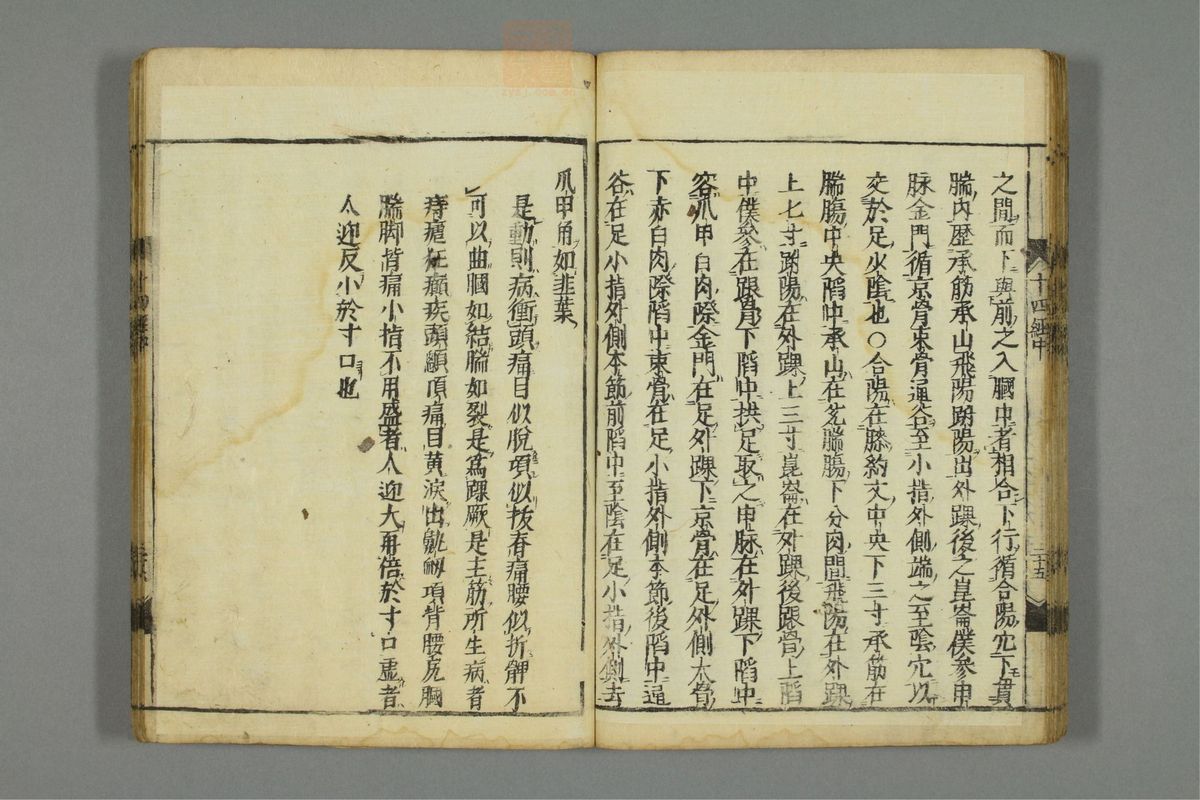 之間而下與前之入膕中者相合下行循合陽穴下貫
腨内歴承筋承山飛陽跗陽出外踝後之崑崙僕參申
脉金門循京骨束骨通谷至小指外側端之至陰穴以
交於足少陰也○合陽在膝約文中央下三寸承筋在
腨腸中央陷中承山在兊腨腸下分肉間飛陽在外踝
上七寸跗陽在外踝上三寸崑崙在外踝後跟骨上陷
中僕參在跟骨下陷中拱足取之申脉在外踝下陷中
容爪甲白肉際金門在足外踝下京骨在足外側大骨
下赤白肉際陷中束骨在足小指外側本節後陷中通
谷在足小指外側本節前陷中至陰在足小指外側去
爪甲角如韭葉
是動則病衝頭痛目似脫項似拔脊痛腰似折髀不
可以曲膕如結腨如裂是爲踝厥是主筋所生病者
痔瘧狂癲疾頭顖頂痛目黄淚出鼽衂項背腰尻膕
腨脚皆痛小指不用盛者人迎大再倍於寸口虚者
人迎反小於寸口也
十四經中
二十五